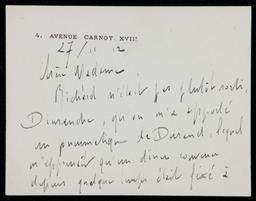 4, AVENUE CARNOT. XVIIᵉ
27/11 12
Chère Madame
Richard n'était pas plutôt sorti,
Dimanche, qu'on m'a apporté
un pneumatique de Durand, lequel
m'apprenait qu'un dîner convenu
depuis quelque temps était fixé à